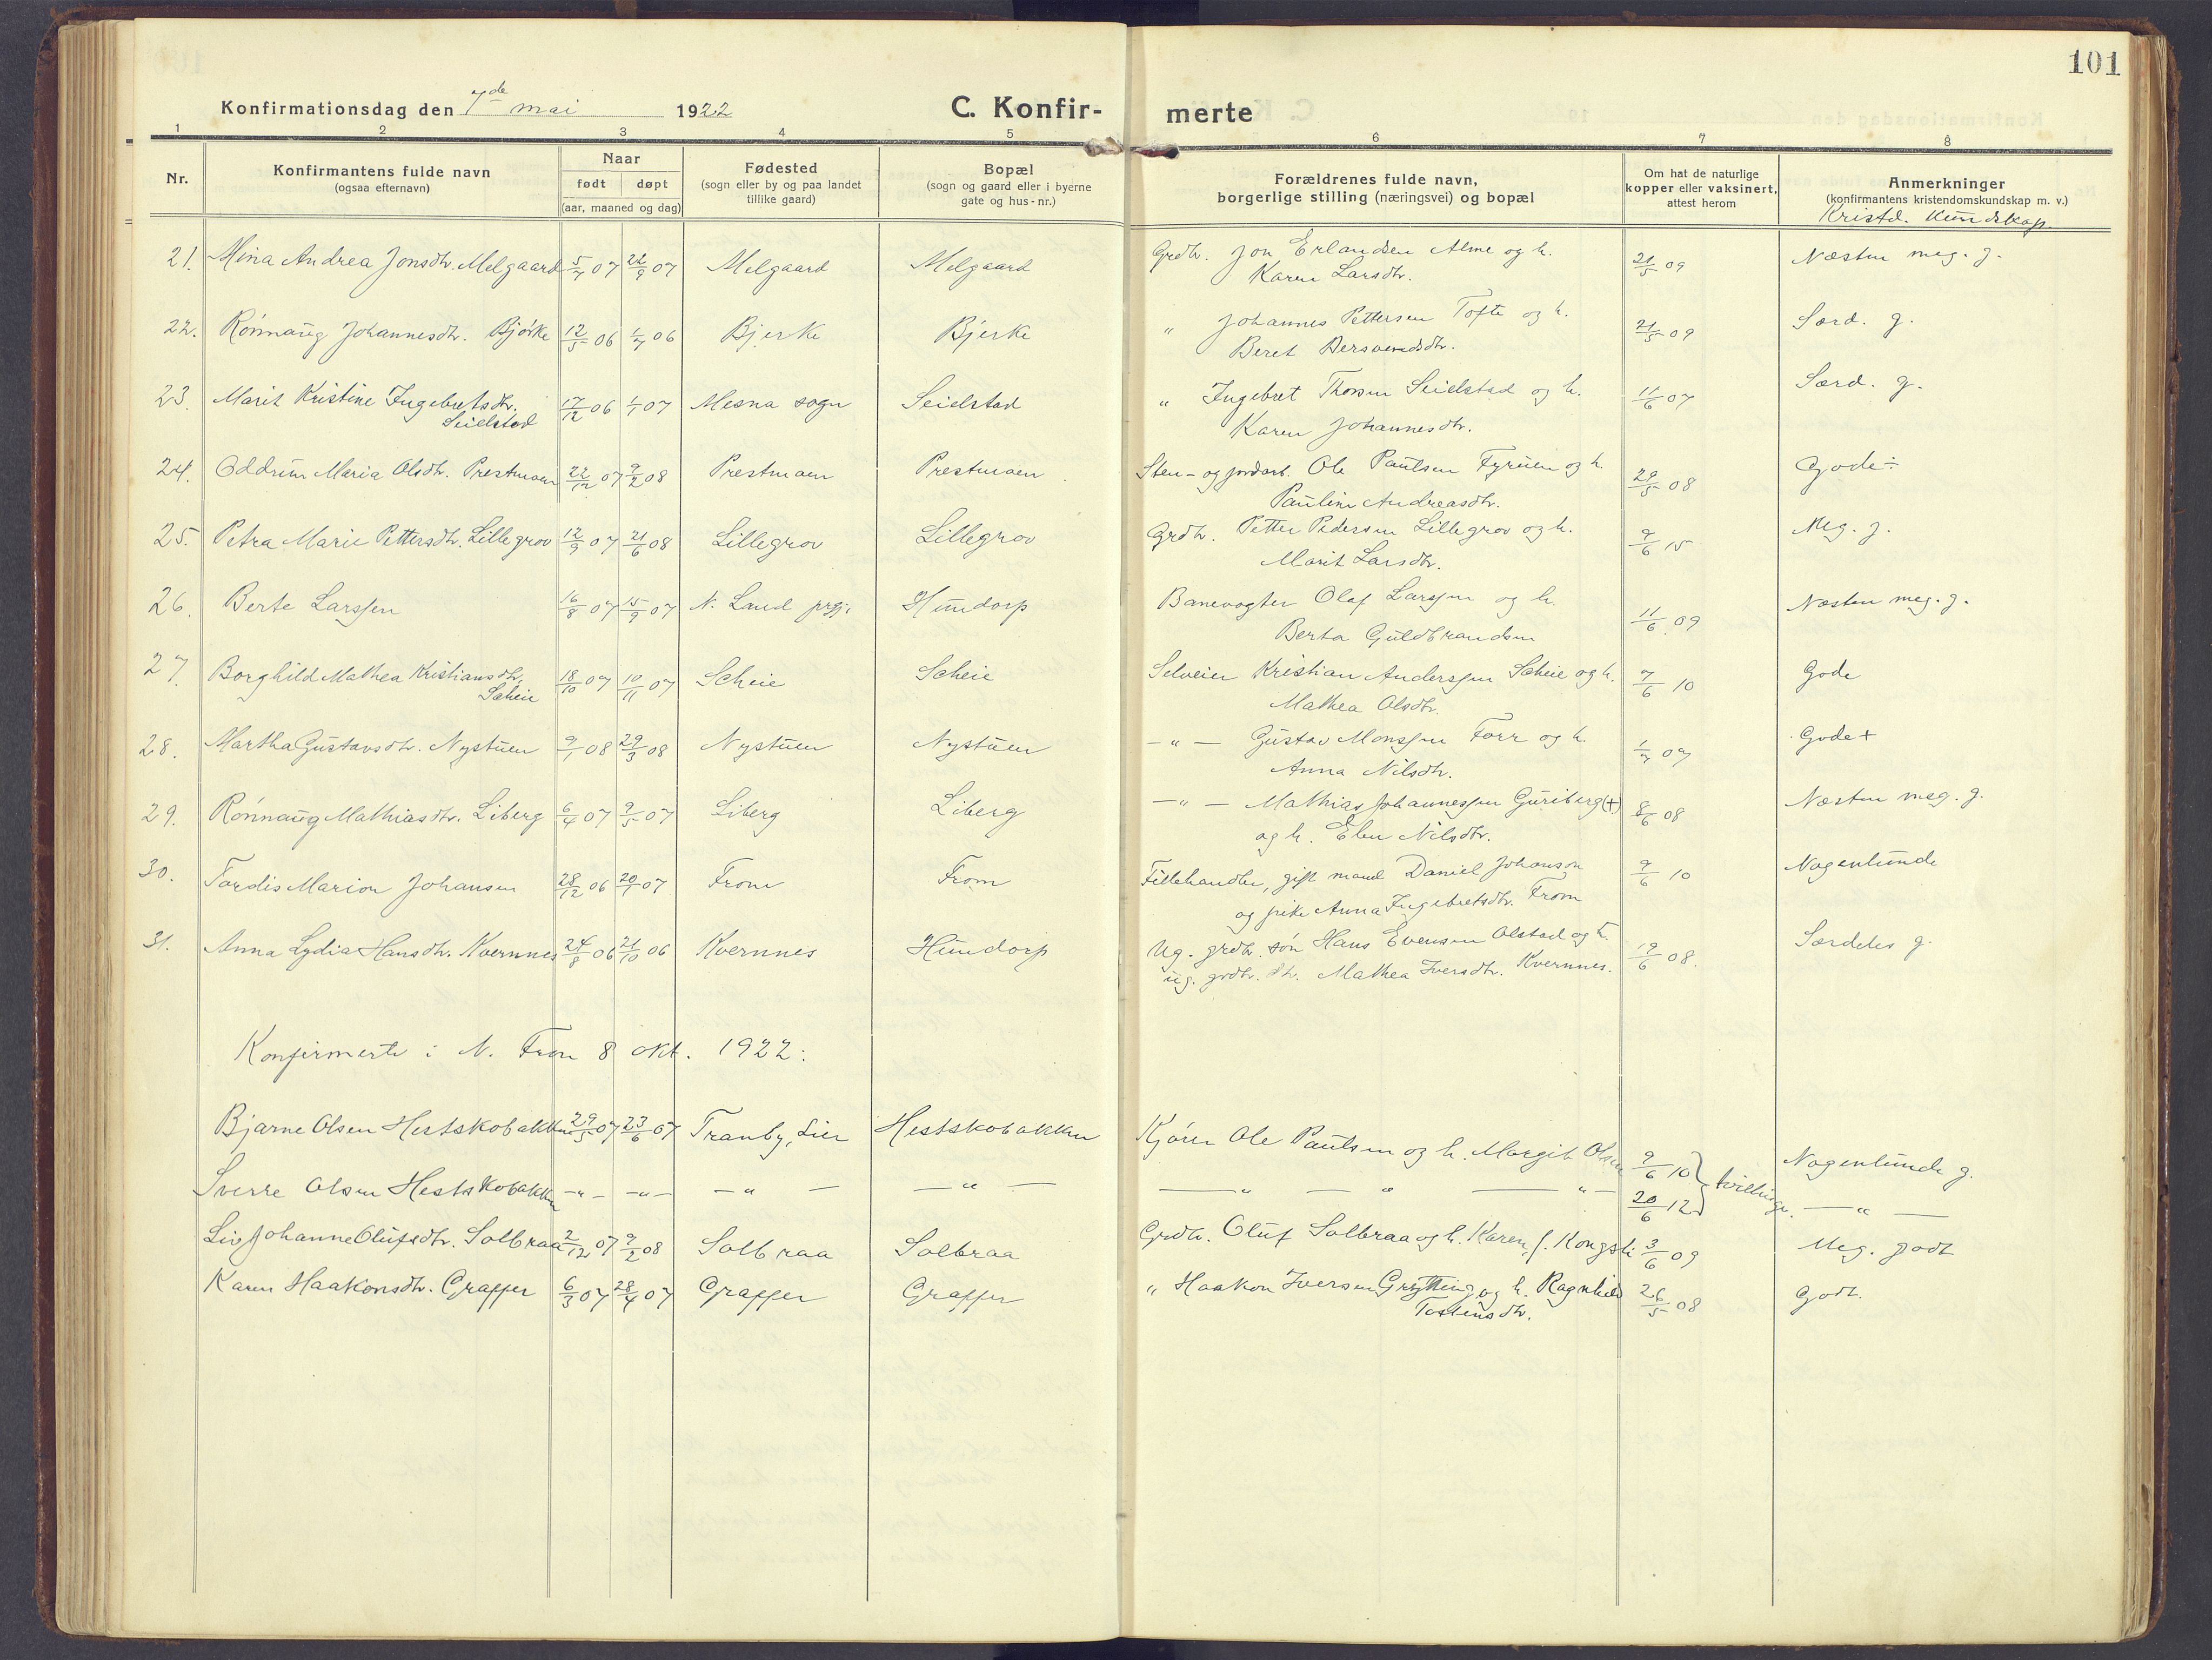 101
Konfirmationsdag den 7de mai 1922 C. Konfir- merte
1 2 3 4 5 6 7 8
Nr. Konfirmantens fulde navn (ogsaa efternavn) Naar født døpt (aar, maaned og dag) Fødested (sogn eller by og paa landet tillike gaard) Bopæl (sogn og gaard eller i byerne gate og hus-nr.) Forældrenes fulde navn, borgerlige stilling (næringsvei) og bopæl Om hat de naturlige kopper eller vaksinert, attest herom Anmerkninger (konfirmantens kristendomskundskap m. v.)
Kristd. Kundskap.
21. Mina Andrea Jonsdtr. Melgaard 5/7 07 22/9 07 Melgaard Melgaard Grdbr. Jon Erlandsen Alme og h. 21/5 09 Næsten meg. g.
Karen Larsdtr.
22. Rønnaug Johannesdtr. Bjørke 12/5 06 1/7 06 Bjerke Bjerke " Johannes Pettersen Tofte og h. 21/5 09 Særd. g.
Beret Bersvendsdtr.
23. Marit Kristine Ingebretsdtr. 17/12 06 1/1 07 Mesna sogn Seielstad " Ingebret Thorsen Seielstad og h. 11/6 07 Særd. g.
Seielstad Karen Johannesdtr.
24. Oddrun Maria Olsdtr. Prestmoen 22/12 07 9/2 08 Prestmoen Prestmoen Sten- og jordarb. Ole Paulsen Fyruen og h. 29/5 08 Gode÷
Pauline Andreasdtr.
25. Petra Marie Pettersdtr. Lillegrov 12/9 07 21/6 08 Lillegrov Lillegrov Grdbr. Petter Pedersen Lillegrov og h. 9/6 15 Meg. g.
Marit Larsdtr.
26. Berte Larssen 16/8 07 15/9 07 N. Land prgj. Hundorp Banevogter Olaf Larssen og h. 11/6 09 Næsten meg. g.
Berta Guldbrandsen
27. Borghild Mathea Kristiansdtr. 18/10 07 10/11 07 Scheie Scheie Selveier Kristian Anderssen Scheie og h. 7/6 10 Gode
Scheie Mathea Olsdtr.
28. Martha Gustavsdtr. Nystuen 9/1 08 29/3 08 Nystuen Nystuen — " — Gustav Monssen Forr og h. 1/7 07 Gode+
Anna Nilsdtr.
29. Rønnaug Mathiasdtr. Liberg 6/4 07 9/5 07 Liberg Liberg — " — Mathias Johannessen Guriberg (+) 8/6 08 Næsten meg. g.
og h. Elen Nilsdtr.
30. Tordis Marion Johansen 28/12 06 20/1 07 From From Fillehandler, gift mand Daniel Johanson 9/6 10 Nogenlunde
og pike Anna Ingebretsdtr. From
31. Anna Lydia Hansdtr. Kvernnes 24/8 06 21/10 06 Kvernnes Hundorp Ug. grdbr. søn Hans Evensen Olstad og 19/6 08. Særdeles g.
ug. grdbr. dtr. Mathea Iversdtr. Kvernnes.
Konfirmerte i N. Fron 8 okt. 1922:
Bjarne Olsen Hestskobakken 29/5 07 23/6 07 Tranby, Lier Hestskobakken Kjører Ole Paulsen og h. Margit Olsen 9/6 10 tvillinger. Nogenlunde g.
Sverre Olsen Hestskobakken — " — — " — — " — — " — — " — " — " — 20/6 12 — " —
Liv Johanne Olufsdtr. Solbraa 2/12 07 9/2 08 Solbraa Solbraa Grdbr. Oluf Solbraa og h. Karen f. Kongsli 3/6 09 Meg. godt
Karen Haakonsdtr. Graffer 6/3 07 28/4 07 Graffer Graffer " Haakon Iversen Grytting og h. Ragnhild 26/5 08 Godt.
Tostensdtr.